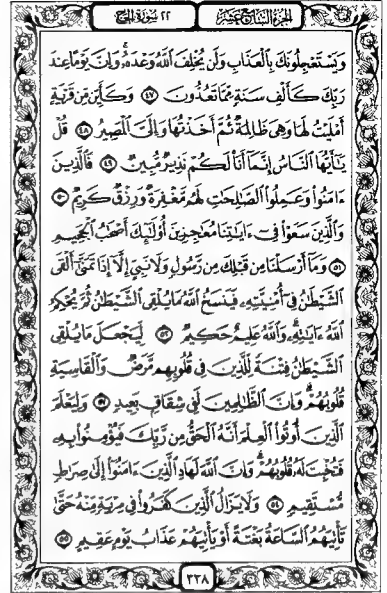 ٢٢ سورة الحج الجزء السابع عشر
وَيَسْتَعْجِلُونَكَ بِالْعَذَابِ وَلَن يُخْلِفَ اللَّهُ وَعْدَهُ وَإِنَّ يَوْمًا عِندَ
رَبِّكَ كَأَلْفِ سَنَةٍ مِّمَّا تَعُدُّونَ ٤٧ وَكَأَيِّن مِّن قَرْيَةٍ
أَمْلَيْتُ لَهَا وَهِيَ ظَالِمَةٌ ثُمَّ أَخَذْتُهَا وَإِلَيَّ الْمَصِيرُ ٤٨ قُلْ
يَا أَيُّهَا النَّاسُ إِنَّمَا أَنَا لَكُمْ نَذِيرٌ مُّبِينٌ ٤٩ فَالَّذِينَ
ءَامَنُوا وَعَمِلُوا الصَّالِحَاتِ لَهُم مَّغْفِرَةٌ وَرِزْقٌ كَرِيمٌ ٥٠
وَالَّذِينَ سَعَوْا فِي ءَايَاتِنَا مُعَاجِزِينَ أُولَٰئِكَ أَصْحَابُ الْجَحِيمِ
٥١ وَمَا أَرْسَلْنَا مِن قَبْلِكَ مِن رَّسُولٍ وَلَا نَبِيٍّ إِلَّا إِذَا تَمَنَّىٰ أَلْقَى
الشَّيْطَانُ فِي أُمْنِيَّتِهِ فَيَنسَخُ اللَّهُ مَا يُلْقِي الشَّيْطَانُ ثُمَّ يُحْكِمُ
اللَّهُ ءَايَاتِهِ وَاللَّهُ عَلِيمٌ حَكِيمٌ ٥٢ لِّيَجْعَلَ مَا يُلْقِي
الشَّيْطَانُ فِتْنَةً لِّلَّذِينَ فِي قُلُوبِهِم مَّرَضٌ وَالْقَاسِيَةِ
قُلُوبُهُمْ وَإِنَّ الظَّالِمِينَ لَفِي شِقَاقٍ بَعِيدٍ ٥٣ وَلِيَعْلَمَ
الَّذِينَ أُوتُوا الْعِلْمَ أَنَّهُ الْحَقُّ مِن رَّبِّكَ فَيُؤْمِنُوا بِهِ
فَتُخْبِتَ لَهُ قُلُوبُهُمْ وَإِنَّ اللَّهَ لَهَادِ الَّذِينَ ءَامَنُوا إِلَىٰ صِرَاطٍ
مُّسْتَقِيمٍ ٥٤ وَلَا يَزَالُ الَّذِينَ كَفَرُوا فِي مِرْيَةٍ مِّنْهُ حَتَّىٰ
تَأْتِيَهُمُ السَّاعَةُ بَغْتَةً أَوْ يَأْتِيَهُمْ عَذَابُ يَوْمٍ عَقِيمٍ ٥٥
٣٣٨